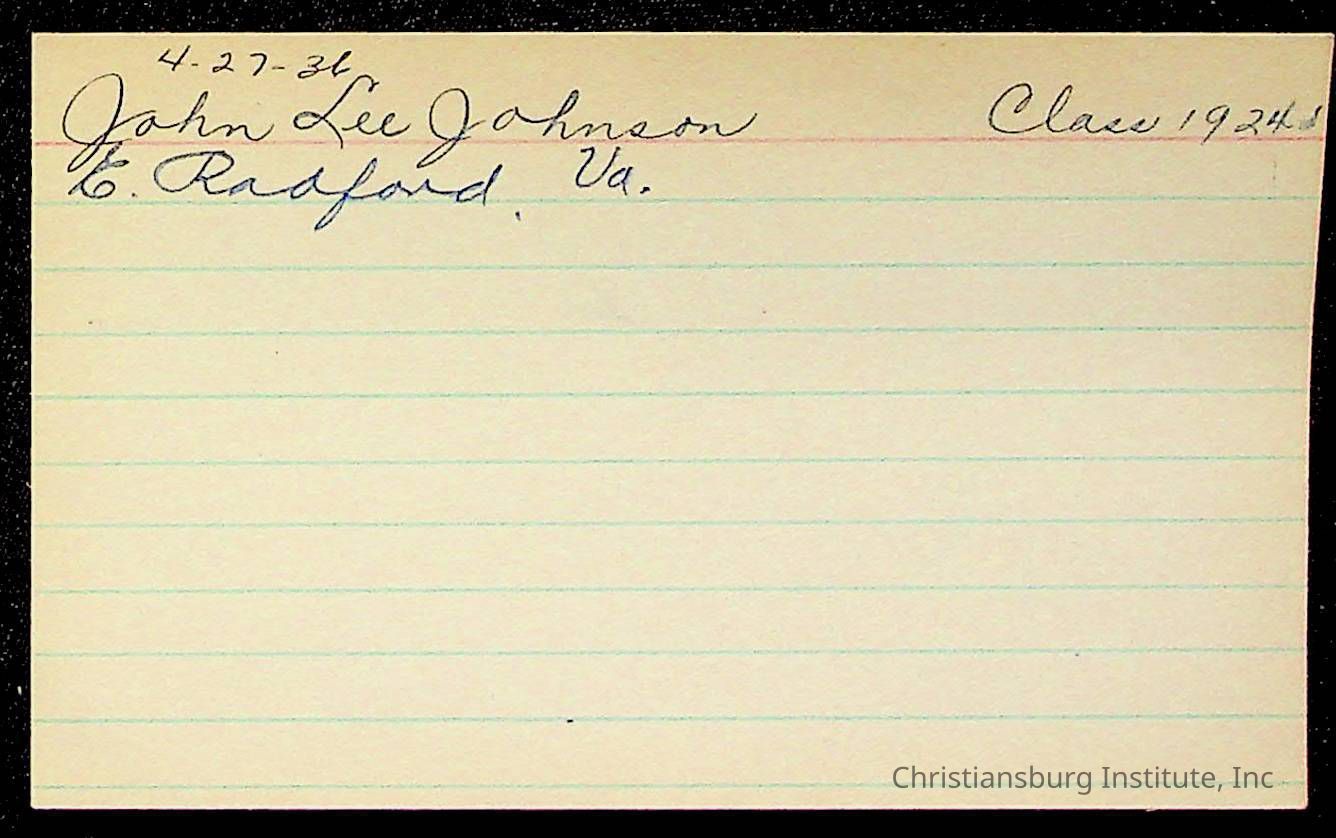 4-27-36
John Lee Johnson Class 1924
E. Radford, Va.
Christiansburg Institute, Inc